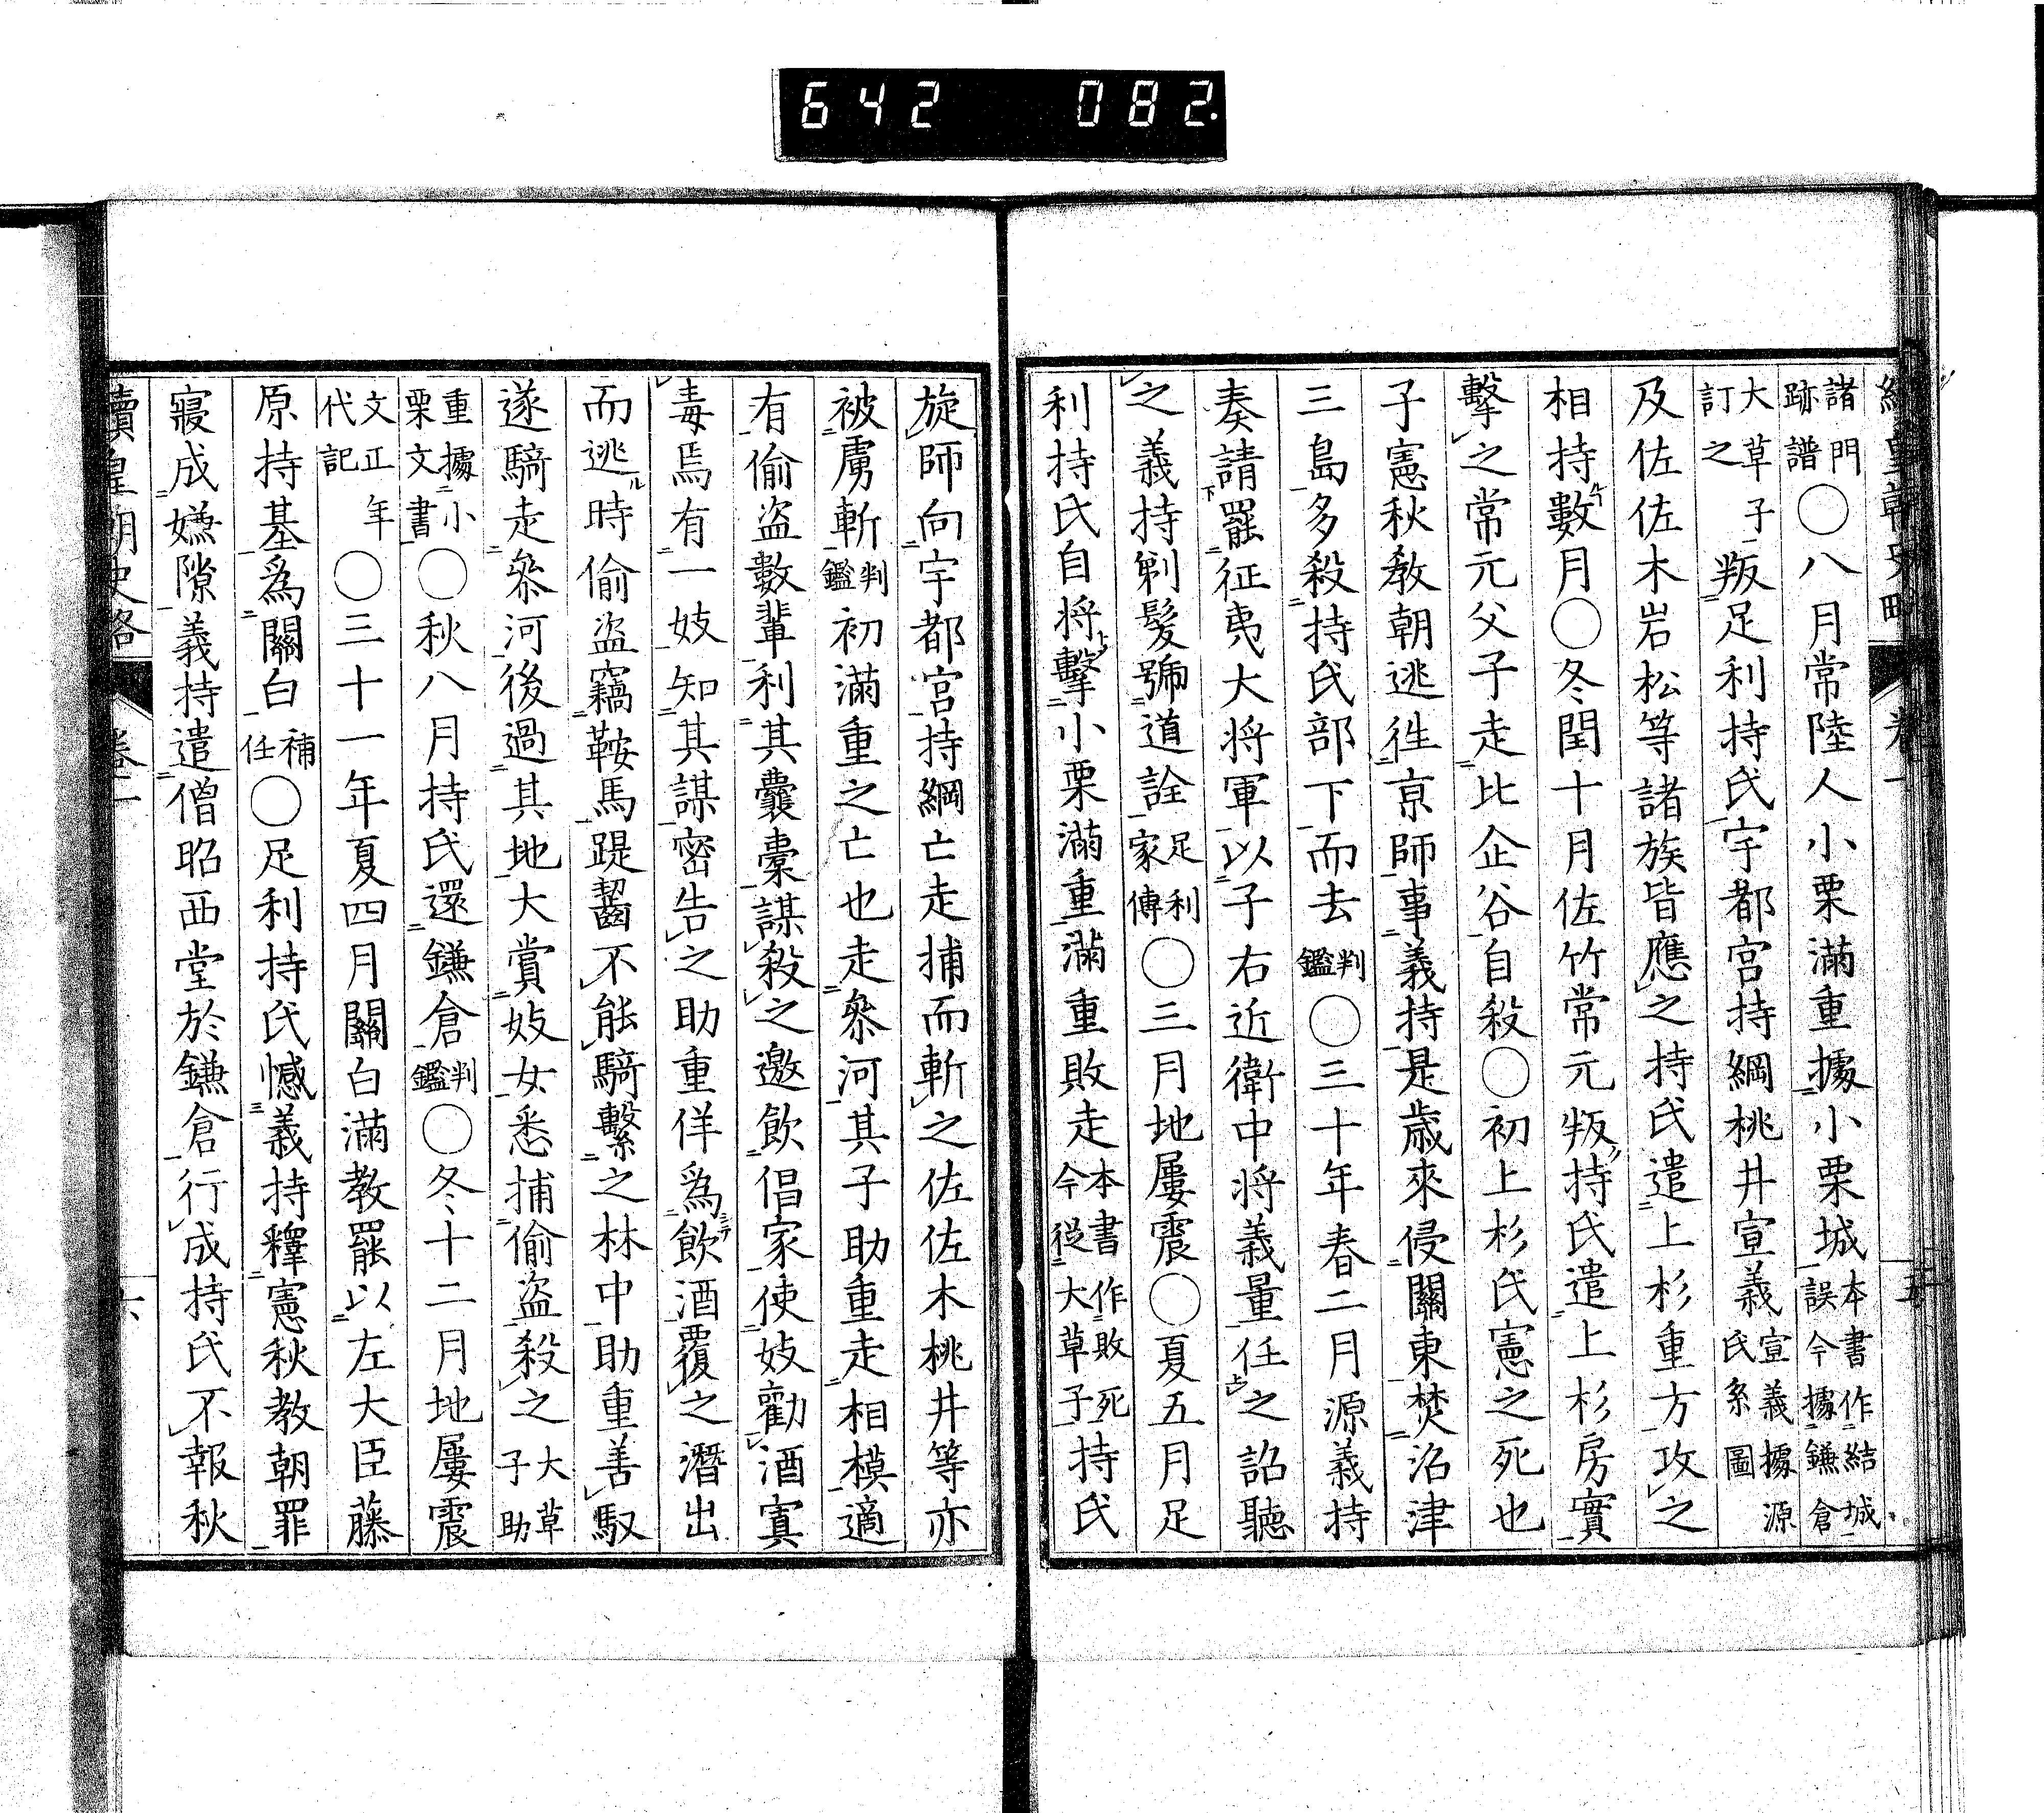 642 082.
續皇朝史略 卷一 五
諸門跡譜○八月常陸人小栗滿重據小栗城本書作結城誤今據鎌倉
大草子訂之叛足利持氏宇都宮持綱桃井宣義宣義據源氏系圖
及佐佐木岩松等諸族皆應之持氏遣上杉重方攻之
相持數月○冬閏十月佐竹常元叛持氏遣上杉房實
擊之常元父子走比企谷自殺○初上杉氏憲之死也
子憲秋教朝逃往京師事義持是歲來侵關東焚沼津
三島多殺持氏部下而去判鑑○三十年春二月源義持
奏請罷征夷大將軍以子右近衛中將義量任之詔聽
之義持剃髮號道詮足利家傳○三月地屢震○夏五月足
利持氏自將擊小栗滿重滿重敗走本書作敗死今從大草子持氏
旋師向宇都宮持綱亡走捕而斬之佐佐木桃井等亦
被虜斬判鑑初滿重之亡也走參河其子助重走相模適
有偷盜數輩利其囊橐謀殺之邀飲倡家使妓勸酒寘
毒焉有一妓知其謀密告之助重佯爲飲酒覆之潛出
而逃時偷盜竊鞍馬踶齧不能騎繫之林中助重善馭
遂騎走參河後過其地大賞妓女悉捕偷盜殺之大草子助
重據小栗文書○秋八月持氏還鎌倉判鑑○冬十二月地屢震
文正年代記○三十一年夏四月關白滿教罷以左大臣藤
原持基爲關白補任○足利持氏憾義持釋憲秋教朝罪
寢成嫌隙義持遣僧昭西堂於鎌倉行成持氏不報秋
續皇朝史略 卷一 六